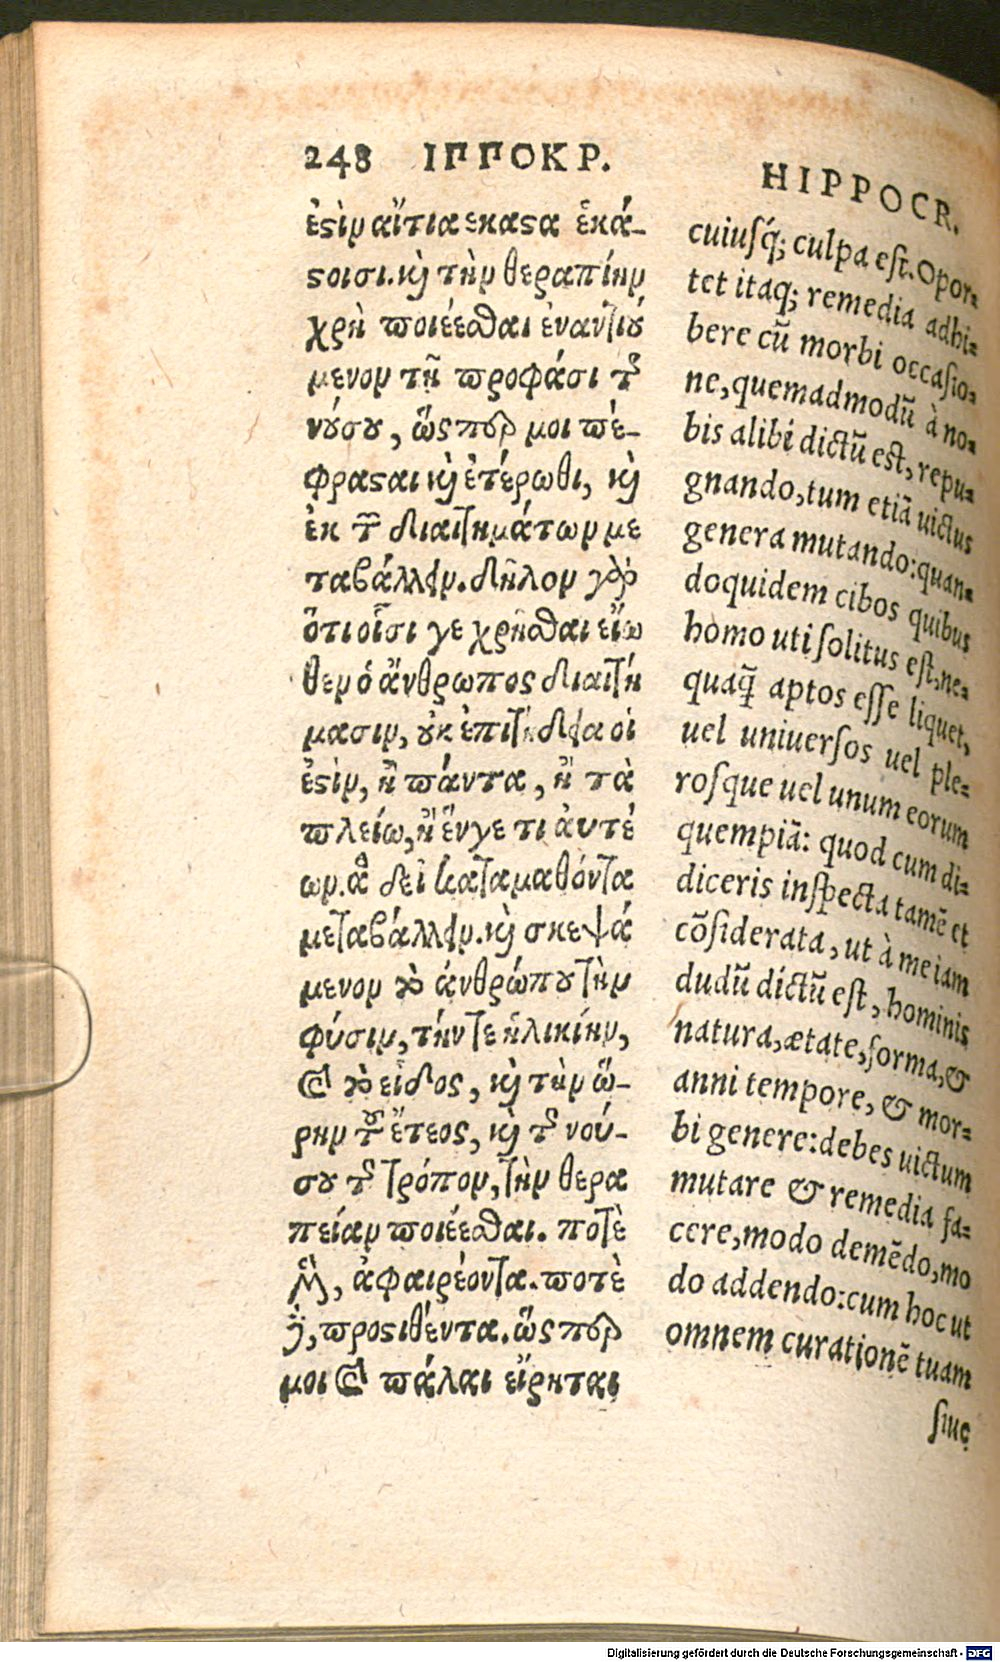 248 ΙΠΠΟΚΡ.
ἐςὶν αἴτια εκαςα ἑκά-
ςοισι. κὴ τὴν θεραπίην
χρὴ ποιέεσθαι ἐναντιού
μενον τῇ προφάσι τῆς
νούσου, ὥς περ μοι πέ-
φραςαι κὴ ἑτέρωθι, κὴ
ἐκ τῶν διαιτημάτων με
ταβάλλειν. δῆλον γὰρ
ὅτι οἷσι γε χρῆσθαι εἴω
θεν ὁ ἄνθρωπος διαιτή
μασιν, οὐκ ἐπιτήδεια οἱ
ἐςὶν, ἢ πάντα, ἢ τὰ
πλείω, ἢ ἕν γε τι ἀυτέ
ων. ἃ δεῖ καταμαθόντα
μεταβάλλειν. κὴ σκεψά
μενον τὸ ἀνθρώπου τὴν
φύσιν, τήν τε ἡλικίην,
καὶ τὸ εἶδος, κὴ τὴν ὥ-
ρην τοῦ ἔτεος, κὴ τῆς νού-
σου τὸν τρόπον, τὴν θερα
πείαν ποιέεσθαι. ποτὲ
μὲν, ἀφαιρέοντα. ποτὲ
δὲ, προςιθέντα. ὥς περ
μοι καὶ πάλαι εἴρηται
HIPPOCR.
cuiusq́; culpa est. Opor-
tet itaq; remedia adhi-
bere cũ morbi occasio-
ne, quemadmodũ à no-
bis alibi dictũ est, repu-
gnando, tum etiã uictus
genera mutando: quan-
doquidem cibos quibus
homo uti solitus est, ne-
quaq̃ aptos esse liquet,
uel uniuersos uel ple-
rosque uel unum eorum
quempiã: quod cum di-
diceris inspecta tamẽ et
cõsiderata, ut à me iam
dudũ dictũ est, hominis
natura, ætate, forma, &
anni tempore, & mor-
bi genere: debes uictum
mutare & remedia fa-
cere, modo demẽdo, mo
do addendo: cum hoc ut
omnem curationẽ tuam
siue
Digitalisierung gefördert durch die Deutsche Forschungsgemeinschaft - DFG